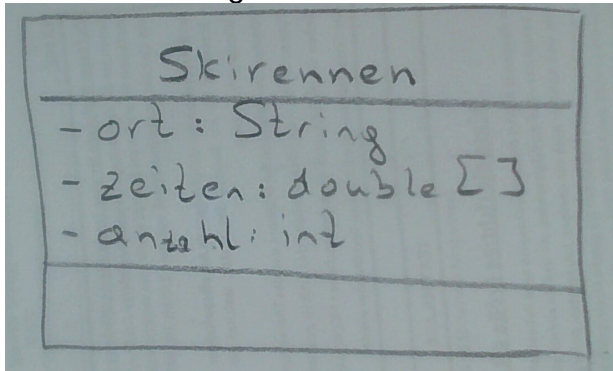 Skirennen
- ort: String
- zeiten: double []
- anzahl: int